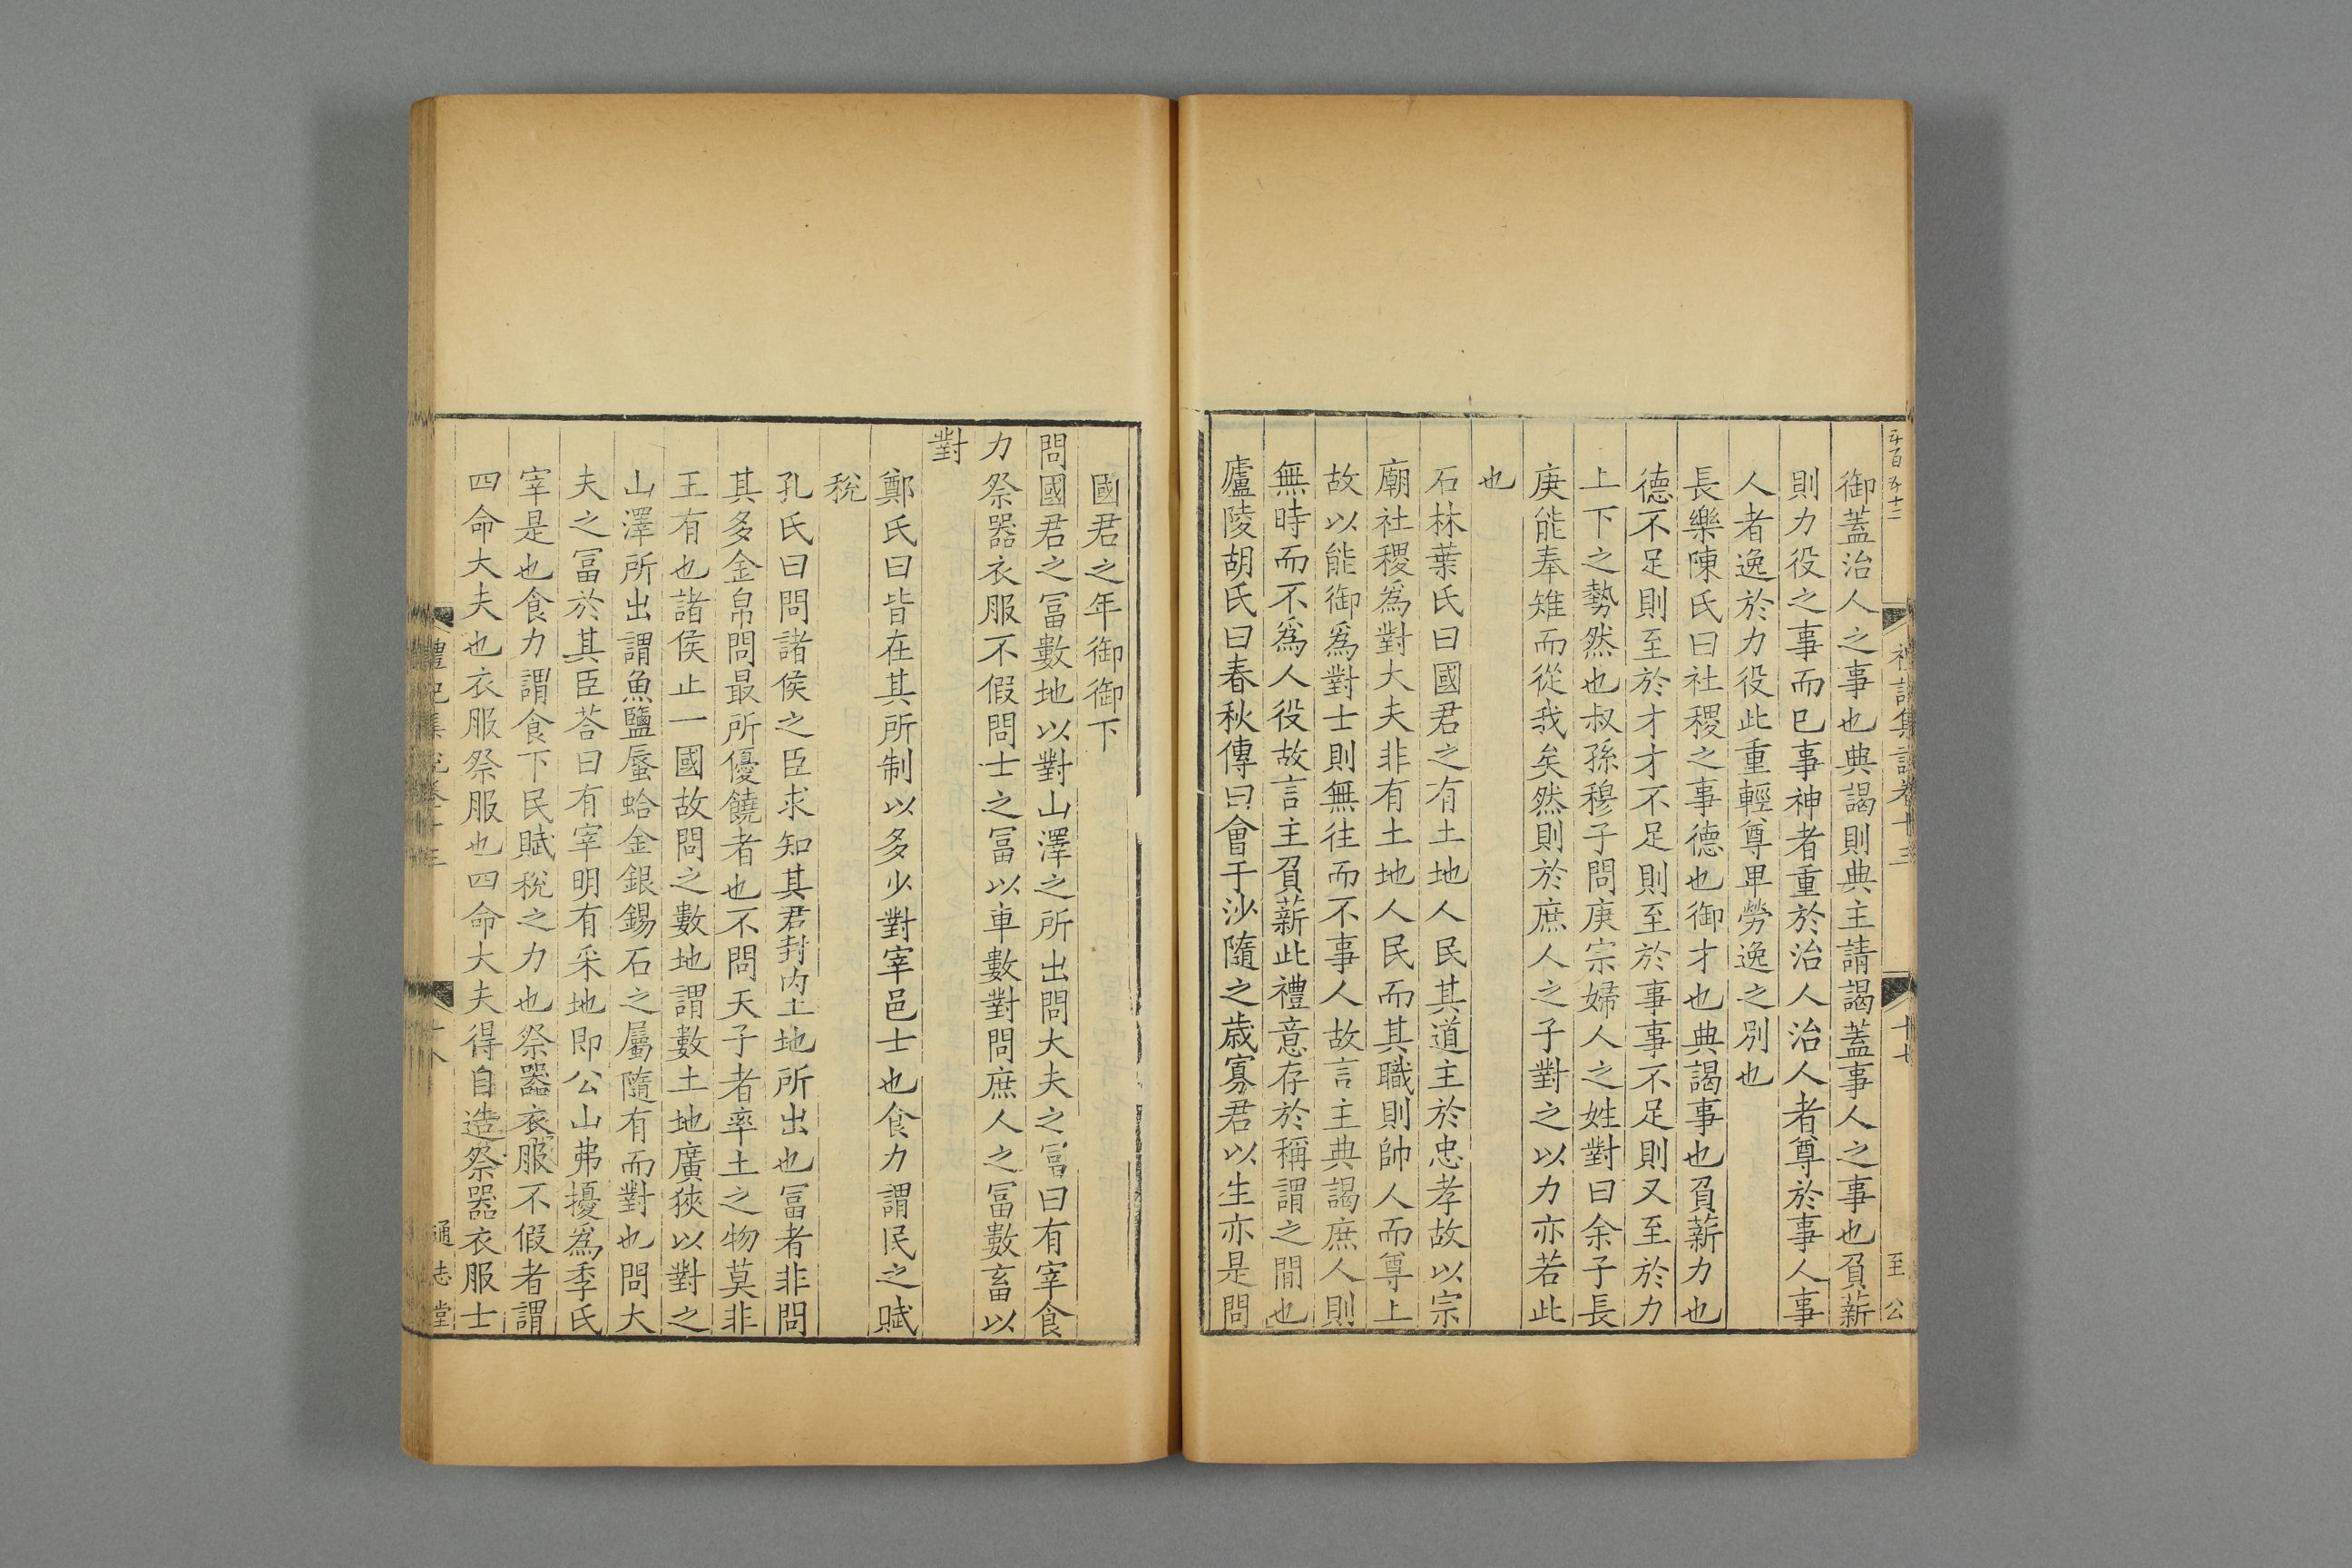 五百五十二 禮記集說卷十三 十七 至公
御蓋治人之事也典謁則典主請謁蓋事人之事也負薪
則力役之事而已事神者重於治人治人者尊於事人事
人者逸於力役此重輕尊卑勞逸之別也
長樂陳氏曰社稷之事德也御才也典謁事也負薪力也
德不足則至於才才不足則至於事事不足則又至於力
上下之勢然也叔孫穆子問庚宗婦人之姓對曰余子長
庚能奉雉而從我矣然則於庶人之子對之以力亦若此
也
石林葉氏曰國君之有土地人民其道主於忠孝故以宗
廟社稷爲對大夫非有土地人民而其職則帥人而尊上
故以能御爲對士則無往而不事人故言主典謁庶人則
無時而不爲人役故言主負薪此禮意存於稱謂之閒也
廬陵胡氏曰春秋傳曰會于沙隨之歲寡君以生亦是問
國君之年御御下
問國君之冨數地以對山澤之所出問大夫之冨曰有宰食
力祭器衣服不假問士之冨以車數對問庶人之冨數畜以
對
鄭氏曰皆在其所制以多少對宰邑士也食力謂民之賦
稅
孔氏曰問諸侯之臣求知其君封内土地所出也冨者非問
其多金帛問最所優饒者也不問天子者率土之物莫非
王有也諸侯止一國故問之數地謂數土地廣狹以對之
山澤所出謂魚鹽蜃蛤金銀錫石之屬隨有而對也問大
夫之冨於其臣荅曰有宰明有采地即公山弗擾爲季氏
宰是也食力謂食下民賦稅之力也祭器衣服不假者謂
四命大夫也衣服祭服也四命大夫得自造祭器衣服士
禮記集說卷十三 十八 通志堂